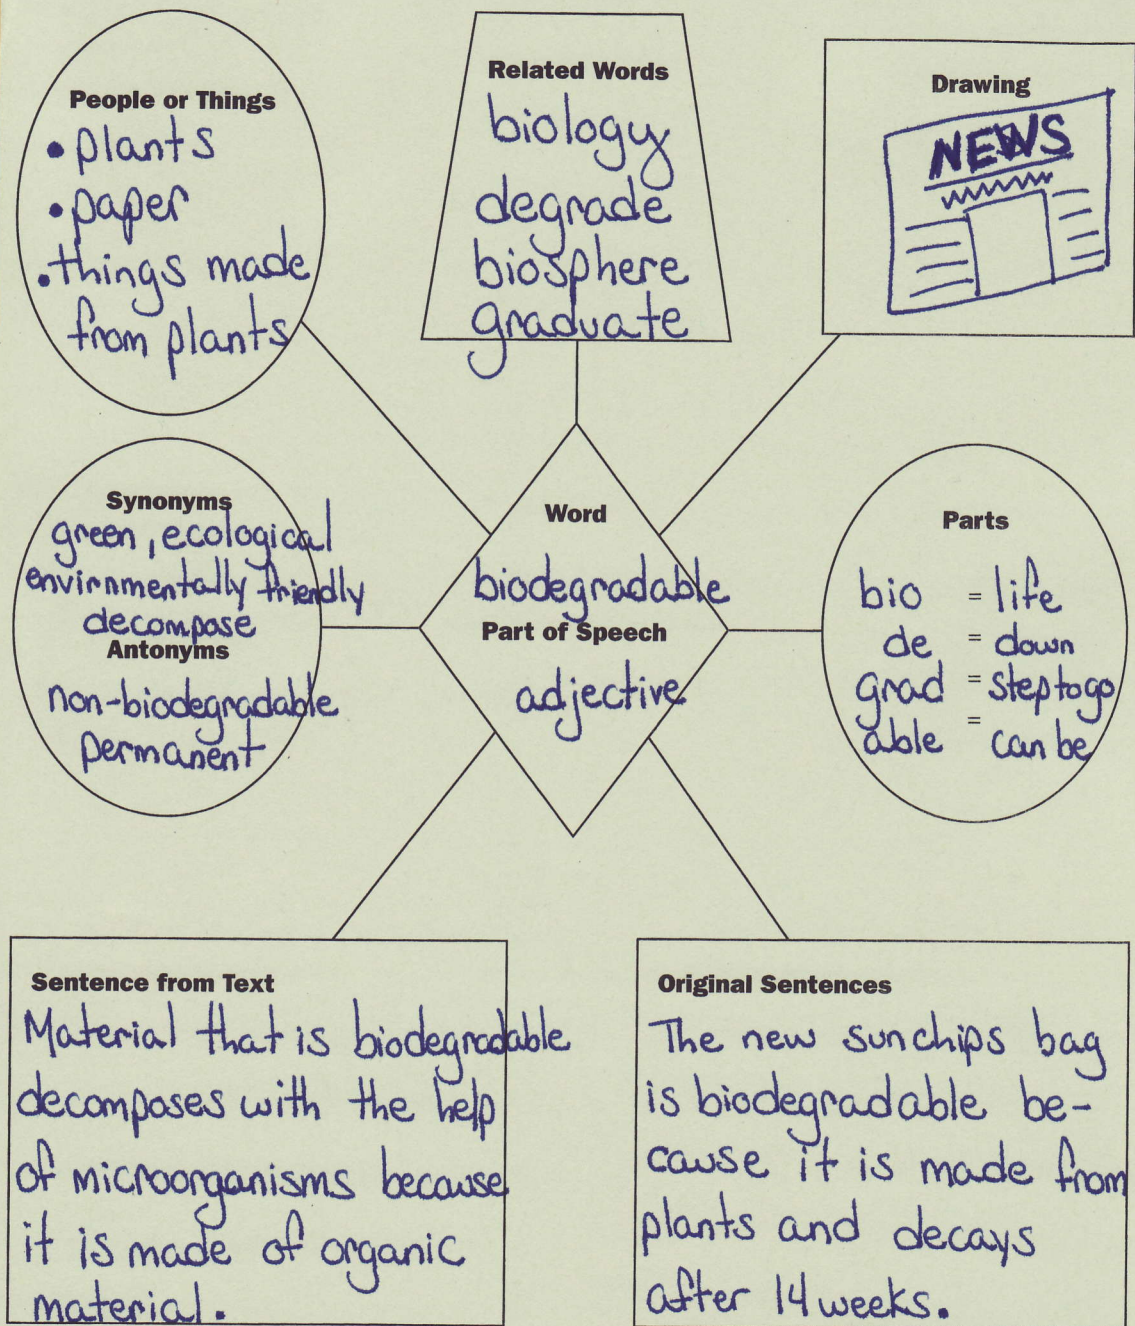 People or Things
• plants
• paper
• things made
from plants
Related Words
biology
degrade
biosphere
graduate
Drawing
NEWS
Synonyms
green, ecological
envirnmentally friendly
decompose
Antonyms
non-biodegradable
permanent
Word
biodegradable
Part of Speech
adjective
Parts
bio = life
de = down
grad = step to go
able = can be
Sentence from Text
Material that is biodegradable
decomposes with the help
of microorganisms because
it is made of organic
material.
Original Sentences
The new sunchips bag
is biodegradable be-
cause it is made from
plants and decays
after 14 weeks.